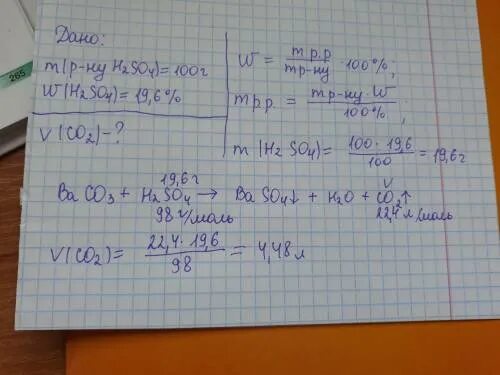 265
Дано:
m(р-ну H2SO4)=100г
W(H2SO4)=19,6%
V(CO2)-?
W = m р.р / m р-ну · 100%;
m р.р. = m р-ну · W / 100% ;
m(H2SO4)= 100 · 19,6 / 100 = 19,6г
19,6г V
BaCO3 + H2SO4 → BaSO4↓ + H2O + CO2↑
98 г/моль 22,4 л/моль
V(CO2)= 22,4 · 19,6 / 98 = 4,48л